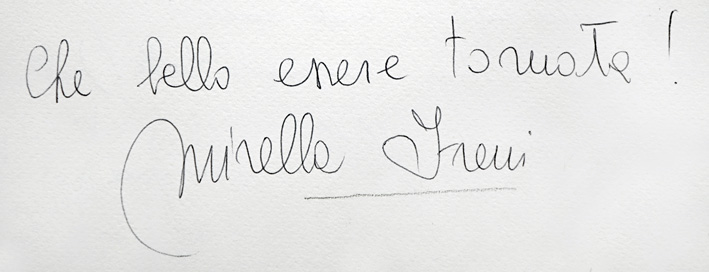 Che bello essere tornata!
Mirella Freni